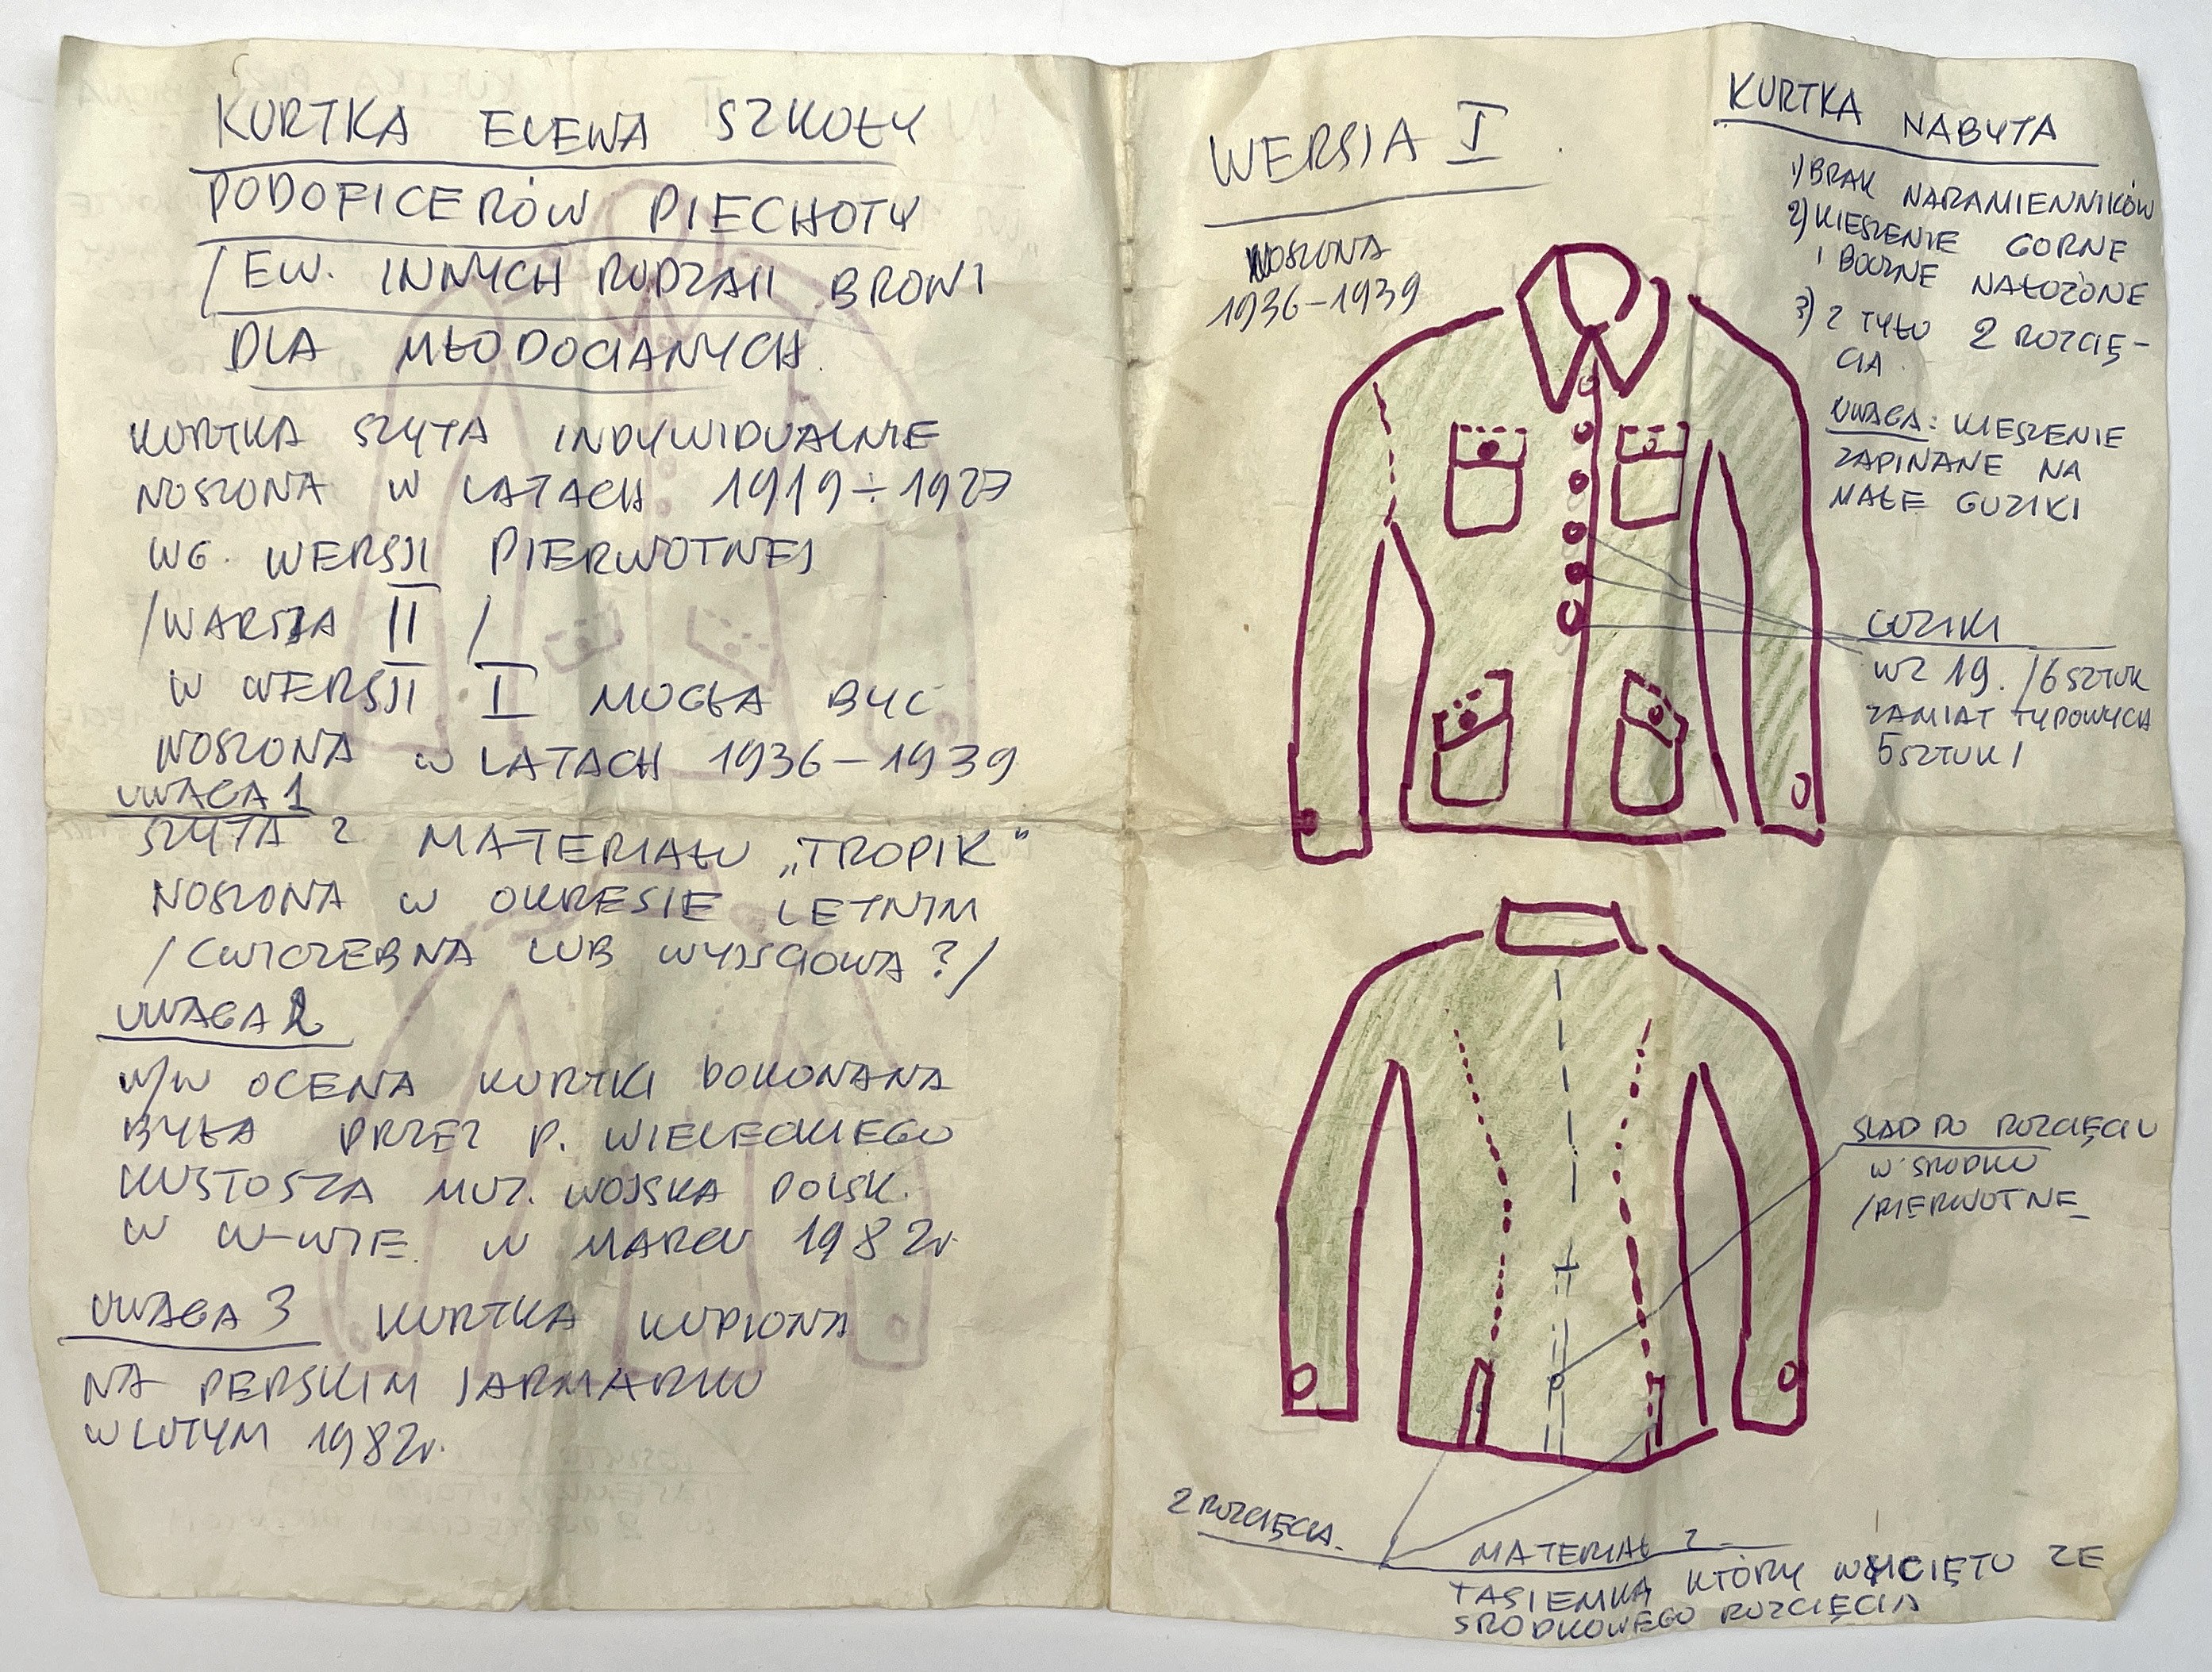 KURTKA ELEWA SZKOŁY
PODOFICERÓW PIECHOTY
/EW. INNYCH RODZAII BRONI
DLA MŁODOCIANYCH.
KURTKA SZYTA INDYWIDUALNIE
NOSZONA W LATACH 1919÷1927
WG. WERSJI PIERWOTNEJ
/WARSJA II /
W WERSJI I MOGŁA BYĆ
NOSZONA W LATACH 1936-1939
UWAGA 1
SZYTA Z MATERIAŁU „TROPIK"
NOSZONA W OKRESIE LETNIM
/CWICZEBNA LUB WYJSCIOWA ?/
UWAGA 2
W/W OCENA KURTKI DOKONANA
BYŁA PRZEZ P. WIELECKIEGO
KUSTOSZA MUZ. WOJSKA POLSK.
W W-WIE. W MARCU 1982r.
UWAGA 3 KURTKA KUPIONA
NA PERSKIM JARMARKU
W LUTYM 1982r.
WERSJA I.
NOSZONA
1936-1939
KURTKA NABYTA
1) BRAK NARAMIENNIKÓW
2) KIESZENIE GORNE
I BOCZNE NAŁOŻONE
3) Z TYŁU 2 ROZCIĘ-
CIA
UWAGA: KIESZENIE
ZAPINANE NA
MAŁE GUZIKI
GUZIKI
WZ 19. /6 SZTUK
ZAMIAT TYPOWYCH
5 SZTUK/
SLAD PO ROZCIĘCIU
W SRODKU
/PIERWOTNE
2 ROZCIĘCIA.
MATERIAŁ Z
TASIEMKA KTÓRY WYCIĘTO ZE
SRODKOWEGO ROZCIĘCIA